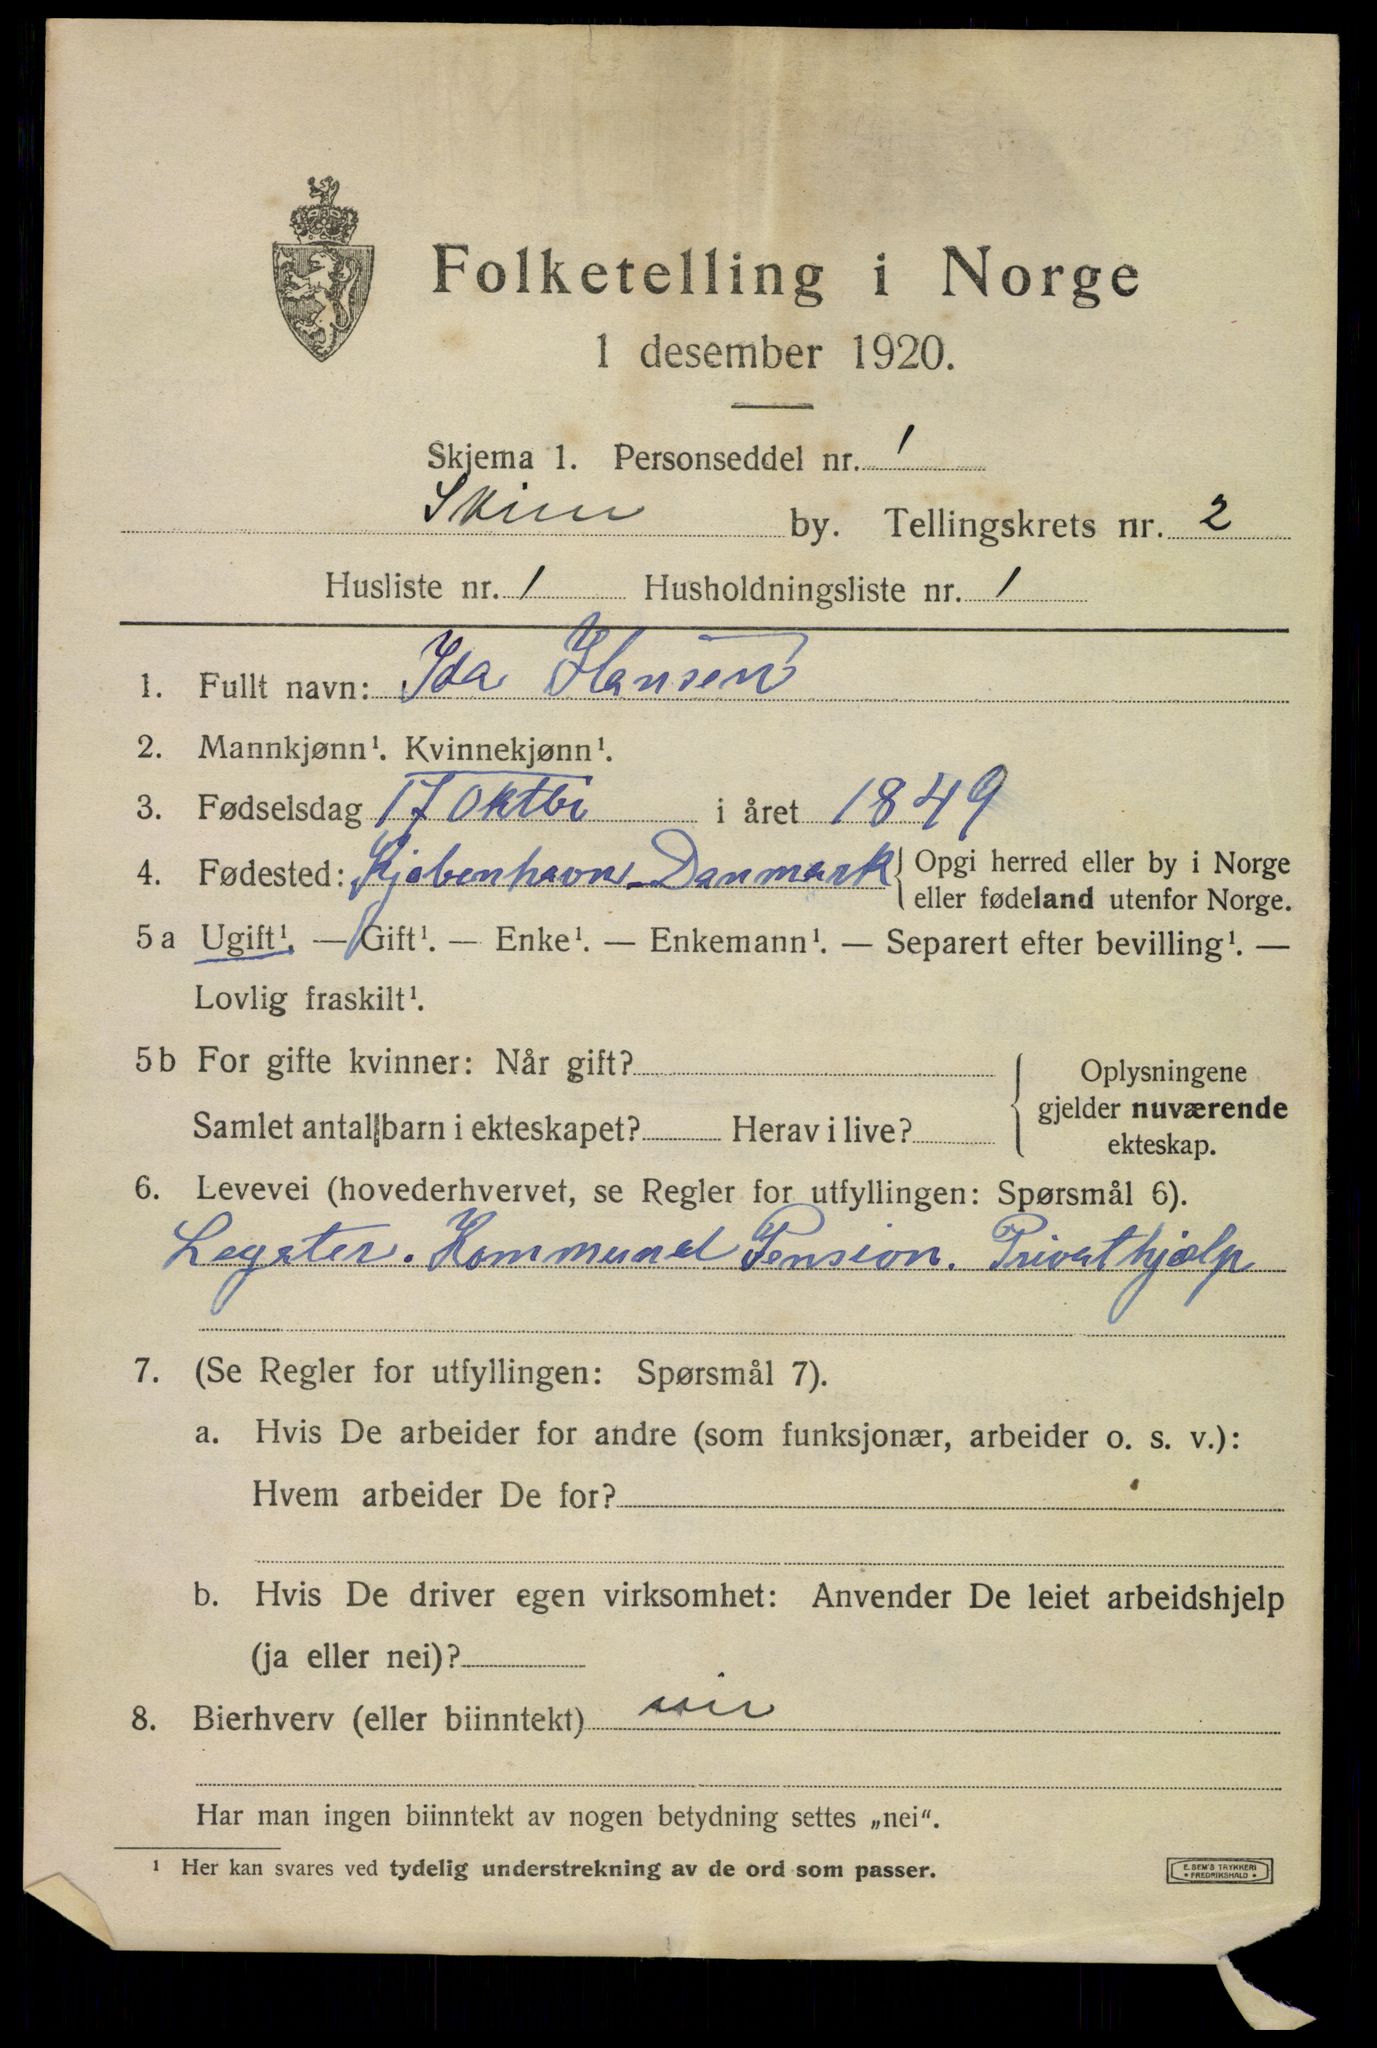 Folketelling i Norge
1 desember 1920.
Skjema 1. Personseddel nr. 1
Skien by. Tellingskrets nr. 2
Husliste nr. 1 Husholdningsliste nr. 1
1. Fullt navn: Ida Hansen
2. Mannkjønn¹. Kvinnekjønn¹.
3. Fødselsdag 17 Oktbr i året 1849
4. Fødested: Kjøbenhavn - Danmark { Opgi herred eller by i Norge
eller fødeland utenfor Norge.
5a Ugift¹. — Gift¹. — Enke¹. — Enkemann¹. — Separert efter bevilling¹. —
Lovlig fraskilt¹.
5b For gifte kvinner: Når gift?
Samlet antal barn i ekteskapet? Herav i live?
{ Oplysningene
gjelder nuværende
ekteskap.
6. Levevei (hovederhvervet, se Regler for utfyllingen: Spørsmål 6).
Legater. Kommunal Pension. Privathjælp
7. (Se Regler for utfyllingen: Spørsmål 7).
a. Hvis De arbeider for andre (som funksjonær, arbeider o. s. v.):
Hvem arbeider De for?
b. Hvis De driver egen virksomhet: Anvender De leiet arbeidshjelp
(ja eller nei)?
8. Bierhverv (eller biinntekt) nei
Har man ingen biinntekt av nogen betydning settes „nei“.
¹ Her kan svares ved tydelig understrekning av de ord som passer.
E. SEM'S TRYKKERI
• FREDRIKSHALD •